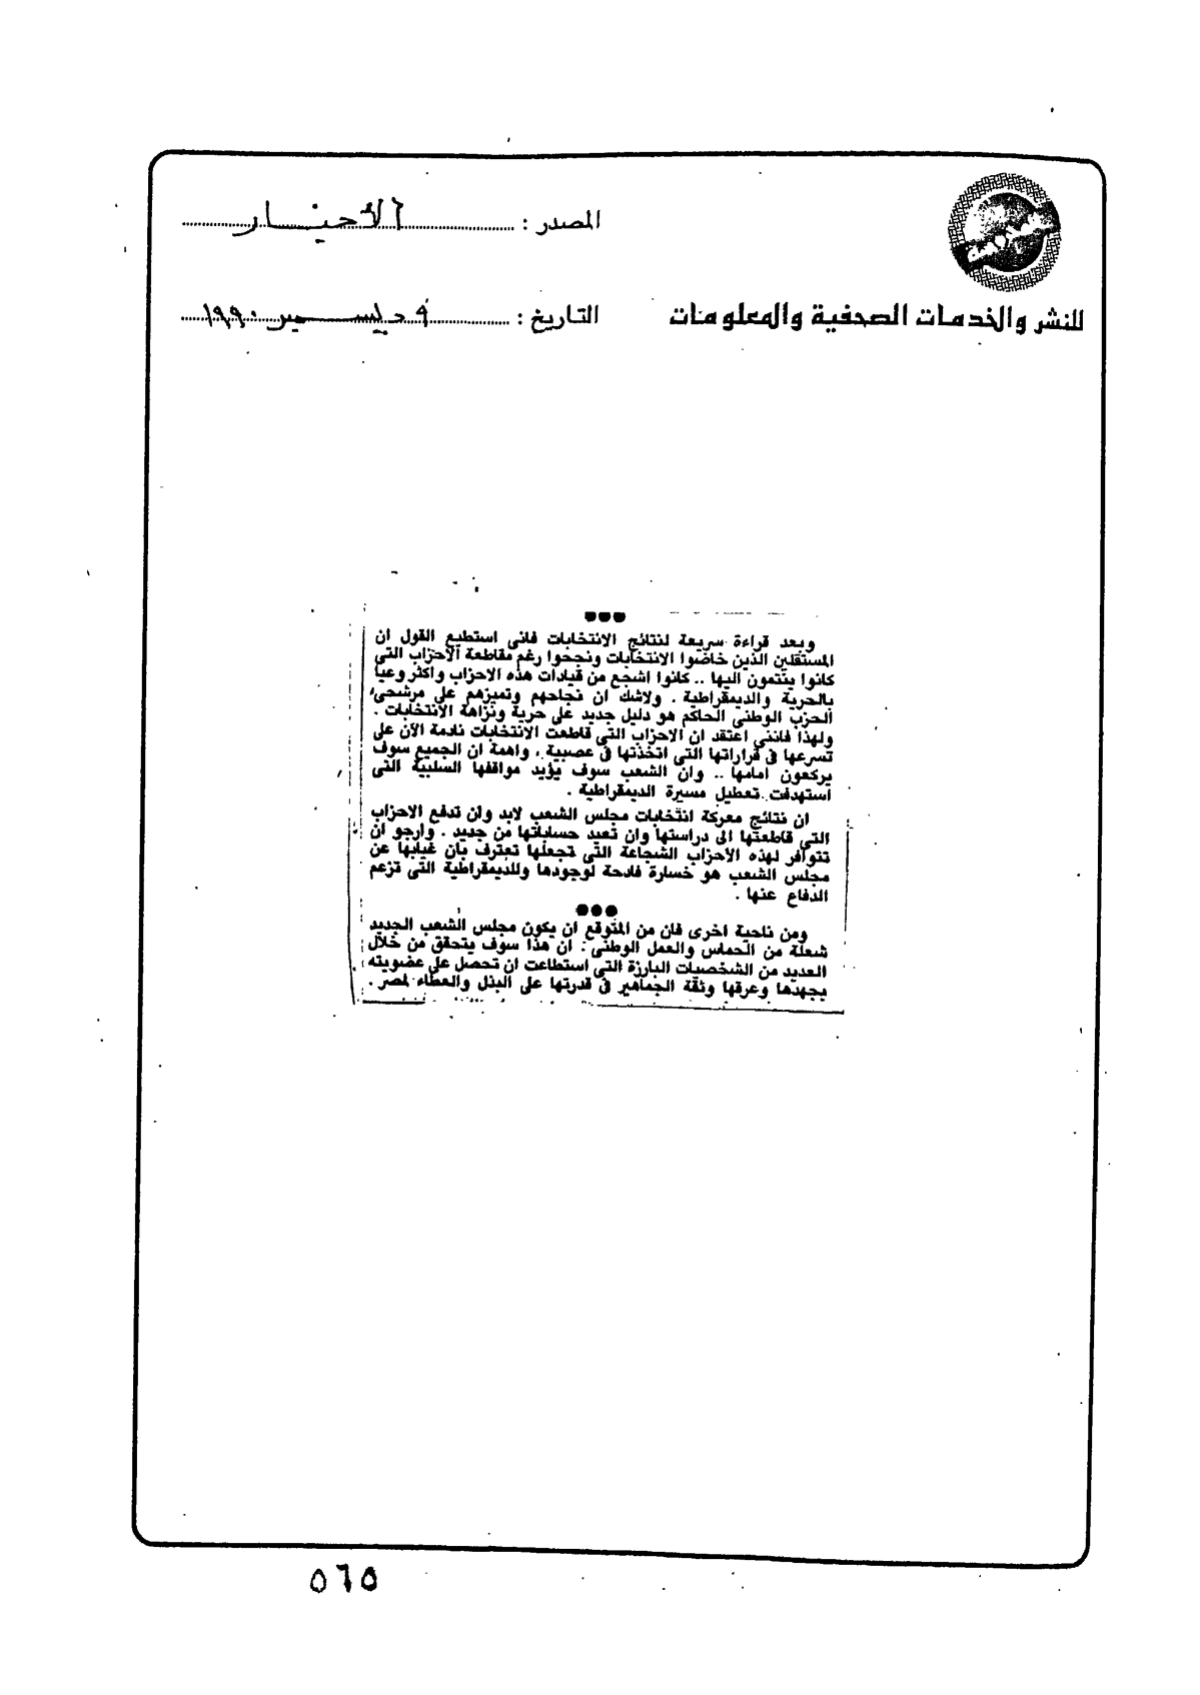 المصدر : الأخبار
للنشر والخدمات الصحفية والمعلومات
التاريخ : ٩ ديسمبر ١٩٩٠
●●●
وبعد قراءة سريعة لنتائج الانتخابات فانى استطيع القول ان
المستقلين الذين خاضوا الانتخابات ونجحوا رغم مقاطعة الاحزاب التى
كانوا ينتمون اليها .. كانوا اشجع من قيادات هذه الاحزاب واكثر وعيا
بالحرية والديمقراطية . ولاشك ان نجاحهم وتميزهم على مرشحى
الحزب الوطنى الحاكم هو دليل جديد على حرية ونزاهة الانتخابات .
ولهذا فاننى اعتقد ان الاحزاب التى قاطعت الانتخابات نادمة الآن على
تسرعها فى قراراتها التى اتخذتها فى عصبية ، واهمة ان الجميع سوف
يركعون امامها .. وان الشعب سوف يؤيد مواقفها السلبية التى
استهدفت تعطيل مسيرة الديمقراطية .
ان نتائج معركة انتخابات مجلس الشعب لابد وان تدفع الاحزاب
التى قاطعتها الى دراستها وان تعيد حساباتها من جديد . وارجو ان
تتوافر لهذه الاحزاب الشجاعة التى تجعلها تعترف بان غيابها عن
مجلس الشعب هو خسارة فادحة لوجودها وللديمقراطية التى تزعم
الدفاع عنها .
●●●
ومن ناحية اخرى فان من المتوقع ان يكون مجلس الشعب الجديد
شعلة من الحماس والعمل الوطنى : ان هذا سوف يتحقق من خلال
العديد من الشخصيات البارزة التى استطاعت ان تحصل على عضويته
بجهدها وعرقها وثقة الجماهير فى قدرتها على البذل والعطاء لمصر .
٥٦٥